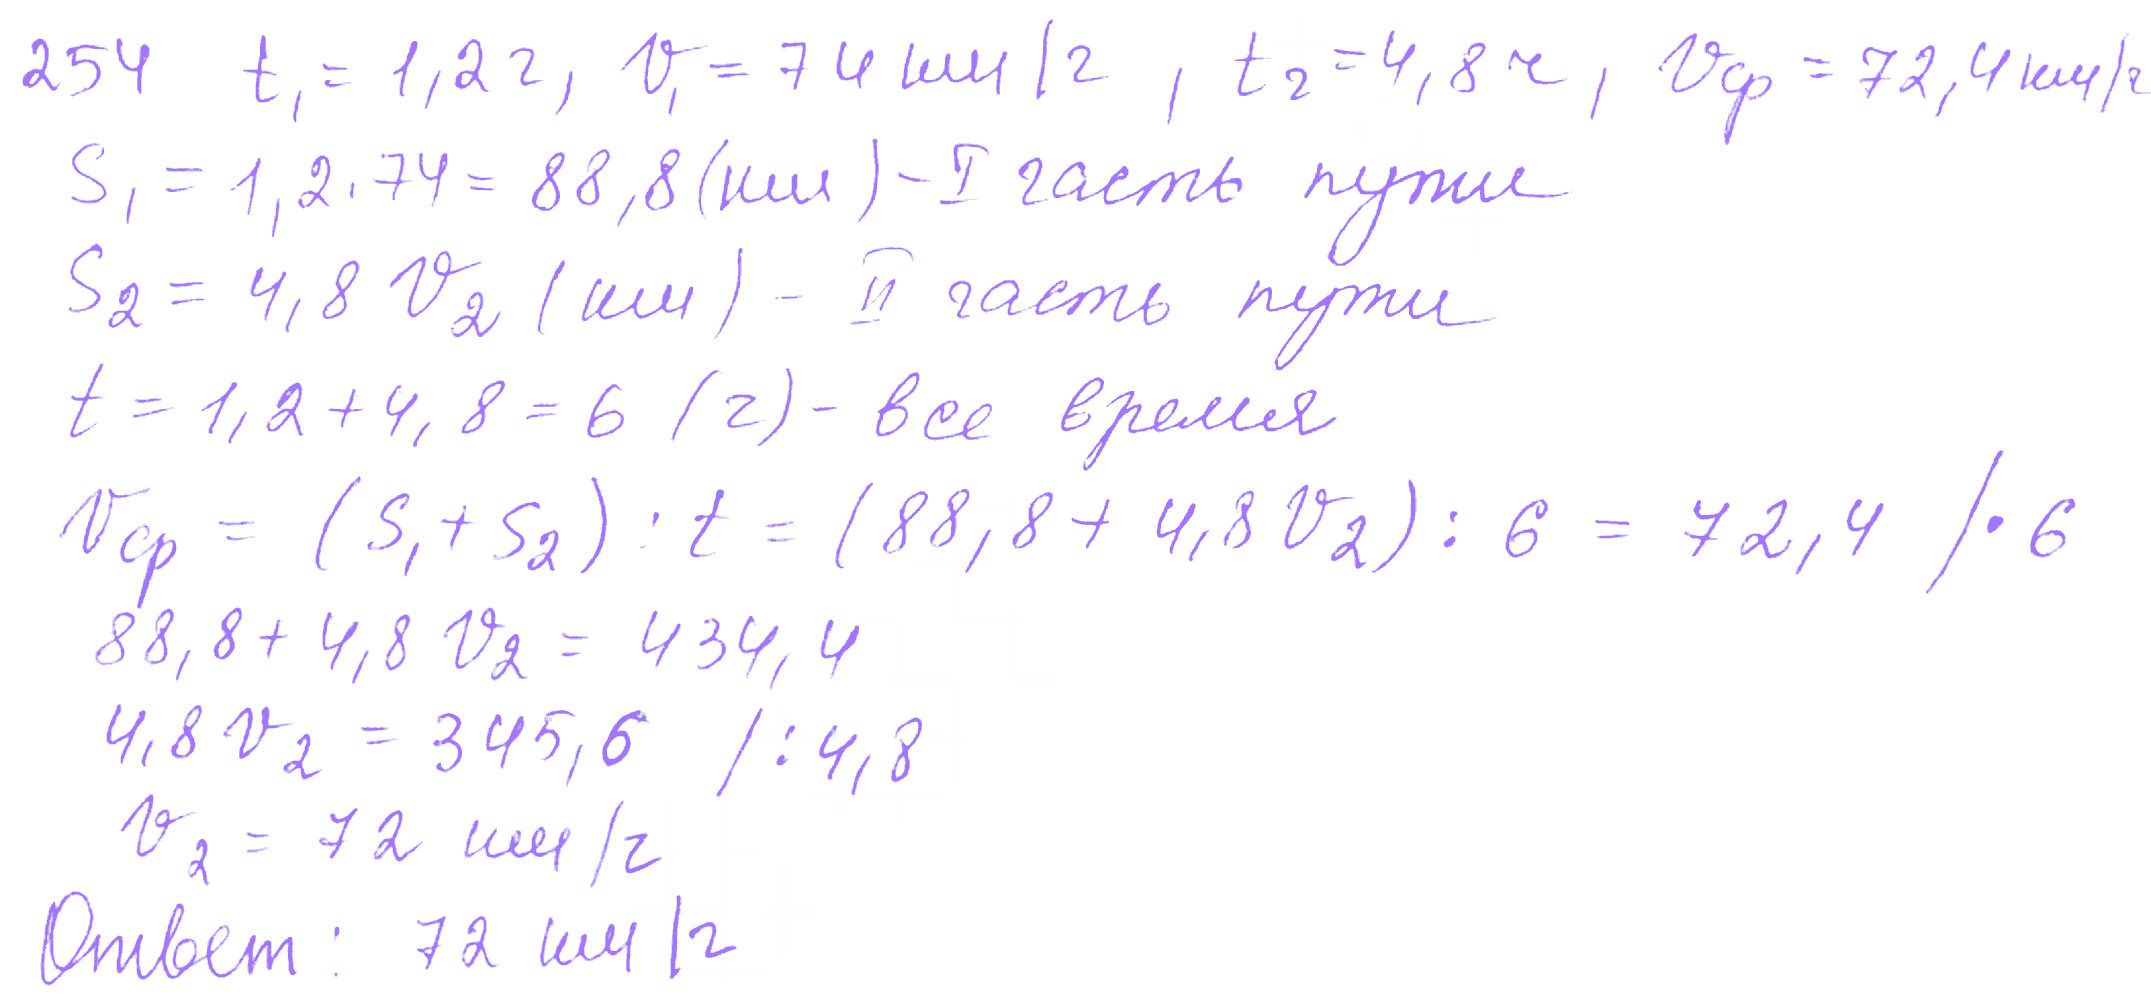 254 t₁ = 1,2ч, v₁ = 74 км/ч, t₂ = 4,8 ч, vср = 72,4 км/ч
S₁ = 1,2 · 74 = 88,8 (км) - I часть пути
S₂ = 4,8 v₂ (км) - II часть пути
t = 1,2 + 4,8 = 6 (ч) - все время
vср = (S₁ + S₂) : t = (88,8 + 4,8 v₂) : 6 = 72,4 /· 6
88,8 + 4,8 v₂ = 434,4
4,8 v₂ = 345,6 /: 4,8
v₂ = 72 км/ч
Ответ: 72 км/ч